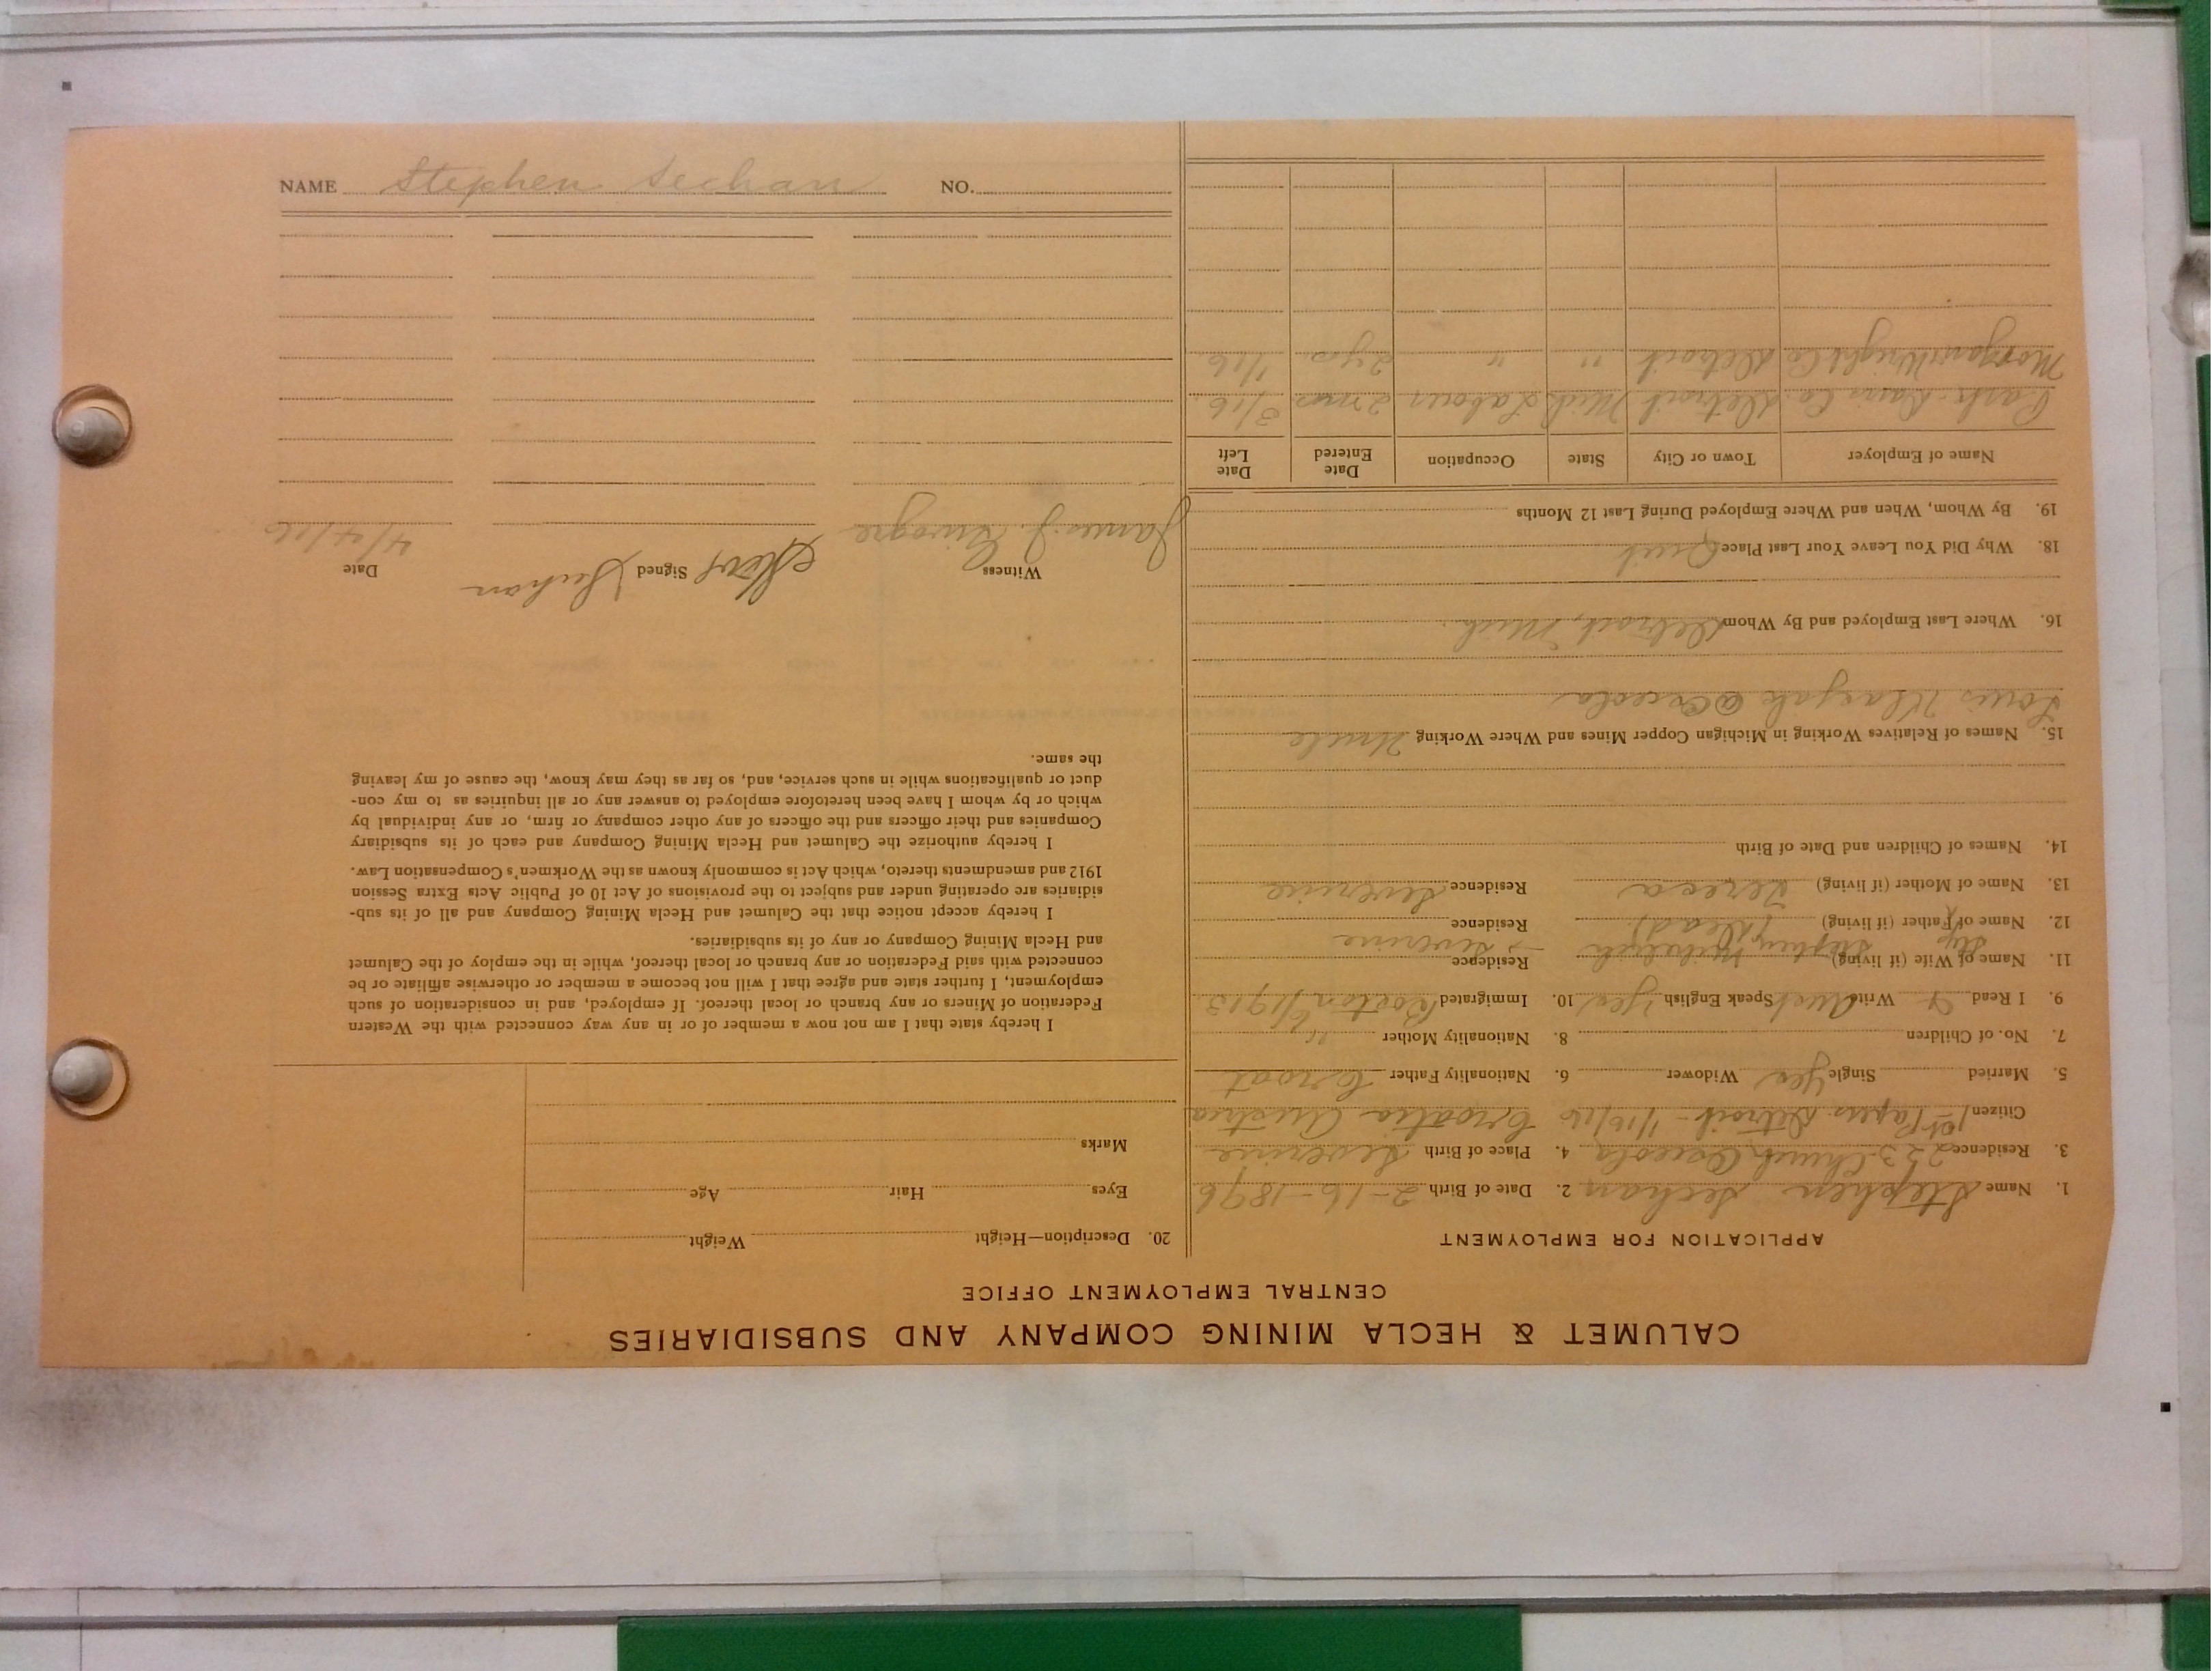 CALUMET & HECLA MINING COMPANY AND SUBSIDIARIES
CENTRAL EMPLOYMENT OFFICE
APPLICATION FOR EMPLOYMENT
1. Name Stephen Sechan 2. Date of Birth 2-16-1896
3. Residence 223 Church Osceola 4. Place of Birth Severine
Citizen 1st Papers Detroit - 1/16/16 Croatia Austria
5. Married Single Yes Widower 6. Nationality Father Croat
7. No. of Children 8. Nationality Mother "
9. I Read Write Speak English Yes 10. Immigrated Boston 6/1913
11. Name of Wife (if living) Residence Severine
12. Name of Father (if living) (Dead) Residence
13. Name of Mother (if living) Teresa Residence Severine
14. Names of Children and Date of Birth
15. Names of Relatives Working in Michigan Copper Mines and Where Working Uncle
Louis Klarjah @ Osceola
16. Where Last Employed and By Whom Detroit, Mich.
18. Why Did You Leave Your Last Place Quit
19. By Whom, When and Where Employed During Last 12 Months
Name of Employer Town or City State Occupation Date Entered Date Left
Park-Davis Co. Detroit Mich Labour 2 mos 3/16
Morgan Wright Co Detroit " " 2 yrs 1/16
20. Description—Height Weight
Eyes Hair Age
Marks
I hereby state that I am not now a member of or in any way connected with the Western
Federation of Miners or any branch or local thereof. If employed, and in consideration of such
employment, I further state and agree that I will not become a member or otherwise affiliate or be
connected with said Federation or any branch or local thereof, while in the employ of the Calumet
and Hecla Mining Company or any of its subsidiaries.
I hereby accept notice that the Calumet and Hecla Mining Company and all of its sub-
sidiaries are operating under and subject to the provisions of Act 10 of Public Acts Extra Session
1912 and amendments thereto, which Act is commonly known as the Workmen's Compensation Law.
I hereby authorize the Calumet and Hecla Mining Company and each of its subsidiary
Companies and their officers and the officers of any other company or firm, or any individual by
which or by whom I have been heretofore employed to answer any or all inquiries as to my con-
duct or qualifications while in such service, and, so far as they may know, the cause of my leaving
the same.
Witness Signed Date
James J. Stev Sechan 4/4/16
NAME Stephen Sechan NO.